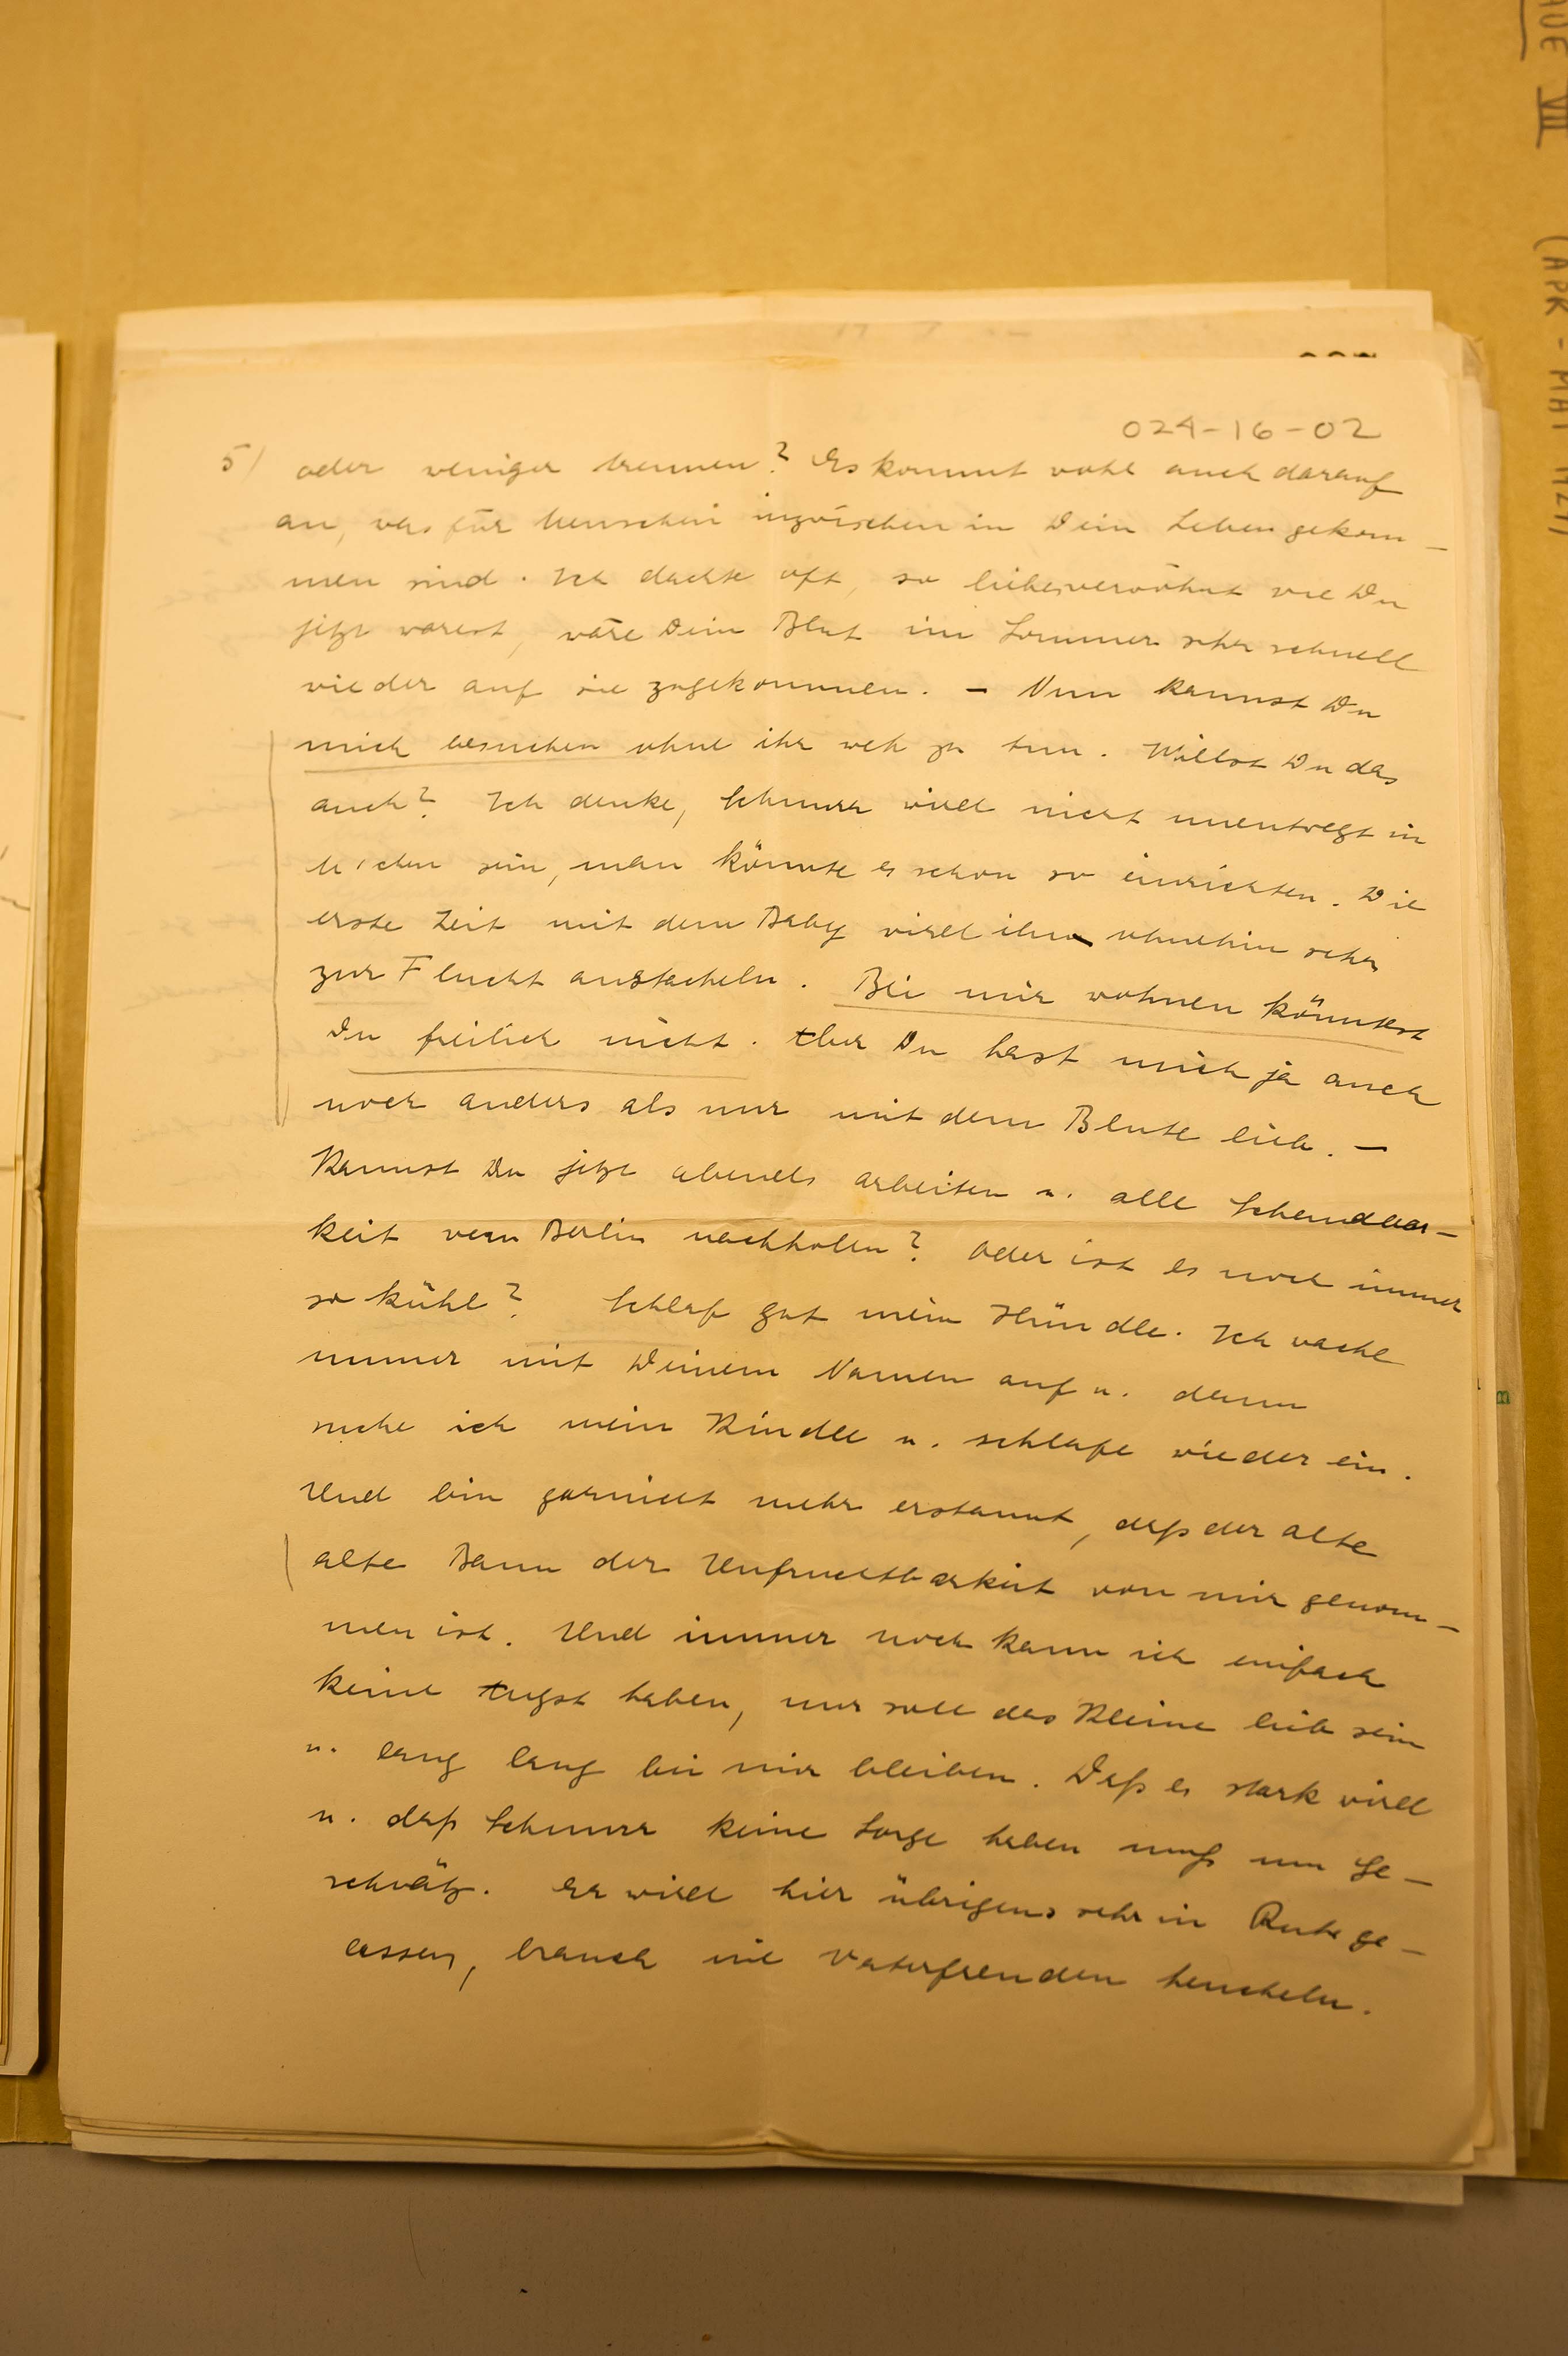 024-16-02
5/ oder weniger trennen? Es kommt wohl auch darauf
an, was für Menschen inzwischen in Dein Leben gekom-
men sind. Ich dachte oft, so liebesverwöhnt wie Du
jetzt warest, wäre Dein Blut im Sommer sehr schnell
wieder auf sie zugekommen. – Nun kannst Du
mich besuchen ohne ihr weh zu tun. Willst Du das
auch? Ich denke, Schnurr wird nicht unentwegt in
sein, man könnte es schon so einrichten. Die
erste Zeit mit dem Baby wird ihn ohnehin sehr
zur Flucht anstacheln. Bei mir wohnen könntest
Du freilich nicht. Aber Du hast mich ja auch
noch anders als nur mit dem Blute lieb. –
Kannst Du jetzt abends arbeiten u. alle
keit von Berlin nachholen? Oder ist es noch immer
so kühl? Schlaf gut mein Hündle. Ich wache
immer mit Deinem Namen auf u. dann
suche ich mein Kindle u. schlafe wieder ein.
Und bin garnicht mehr erstaunt, daß der alte
alte Bann der Unfruchtbarkeit von mir genom-
men ist. Und immer noch kann ich einfach
keine Angst haben, nur soll das Kleine lieb sein
u. lang lang bei mir bleiben. Daß es stark wird
u. daß Schnurr keine Sorge haben muß um Ge-
schwätz. Er wird hier übrigens sehr in Ruhe ge-
lassen, brauch nie Vaterfreuden heucheln.
VII